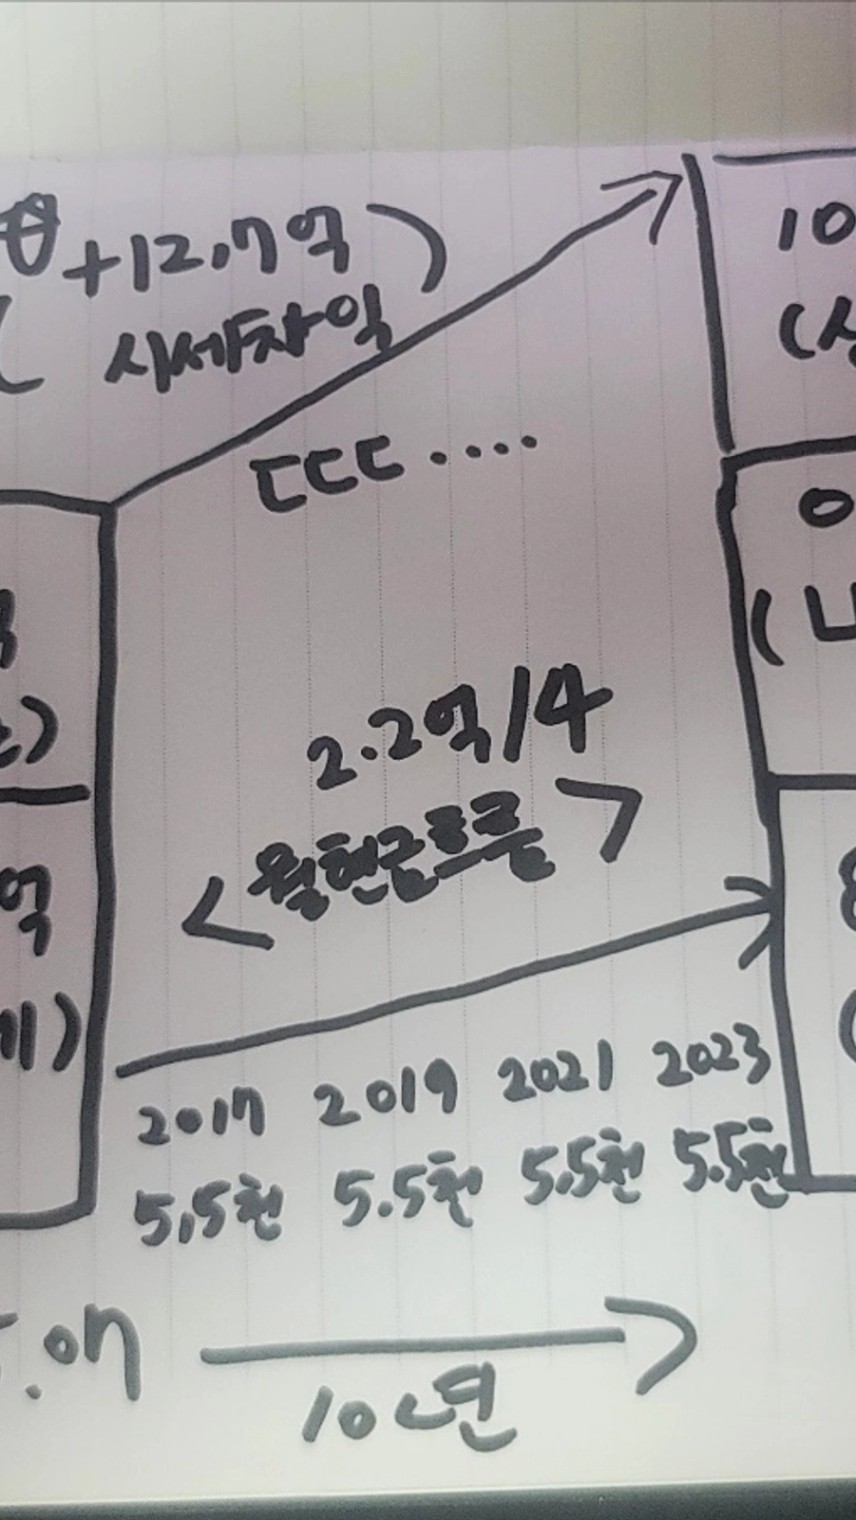 +12.7억
(시세차익)
10
ㄷㄷㄷ....
2.2억/4
<월현금흐름>
억
2017 2019 2021 2023
5.5천 5.5천 5.5천 5.5천
10년